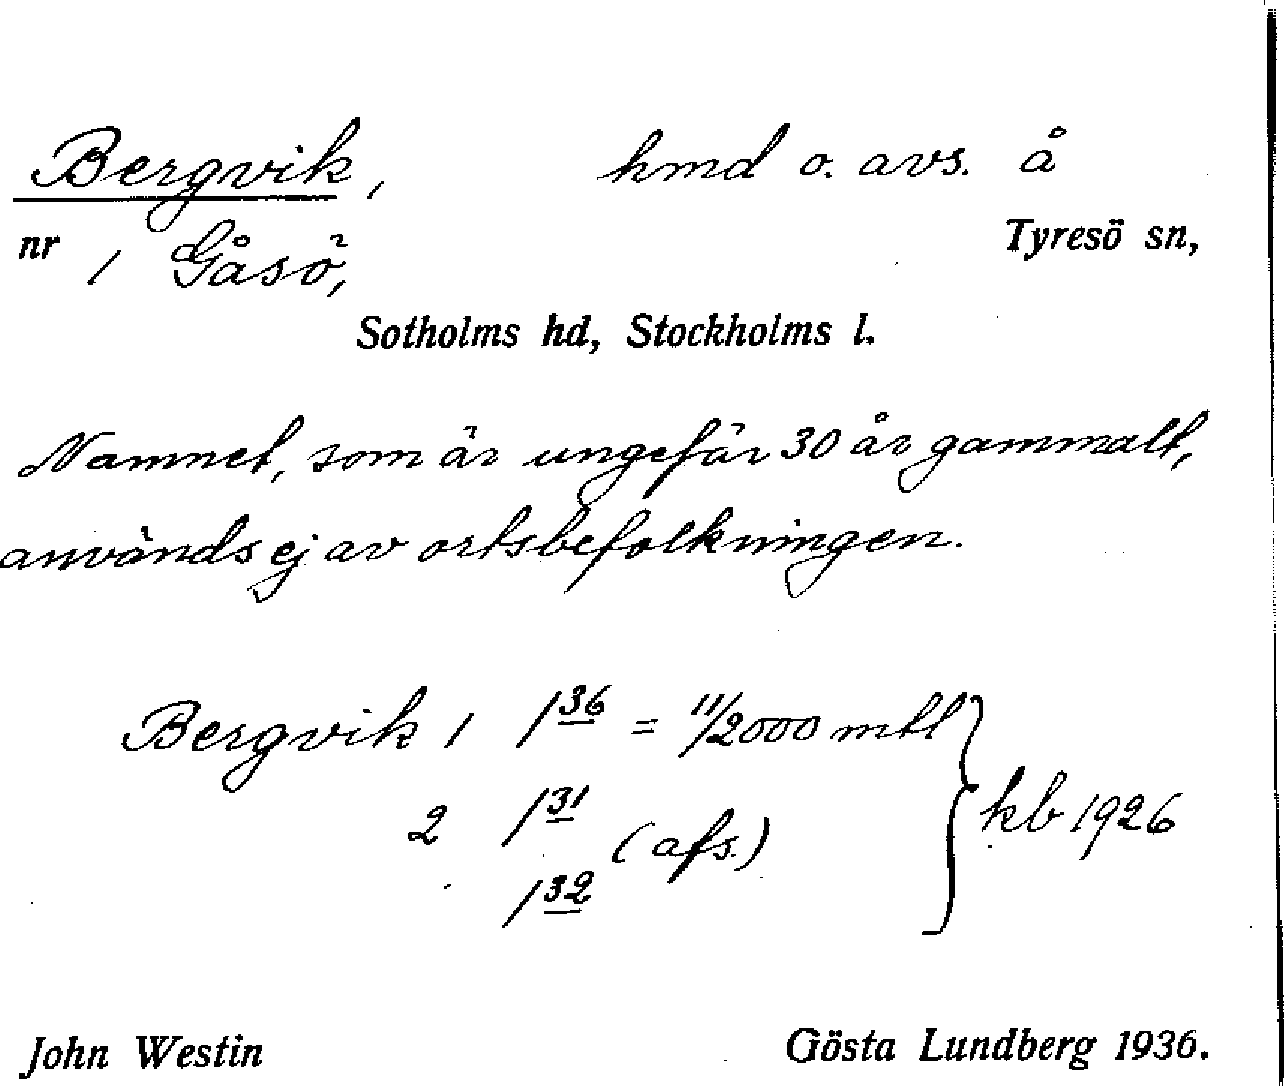 Bergvik, hmd o. avs. å
nr 1 Gåsö, Tyresö sn,
Sotholms hd, Stockholms l.
Namnet, som är ungefär 30 år gammalt,
används ej av ortsbefolkningen.
Bergvik 1 1 36 = 11/2000 mtl
2 1 31 (afs.) kb 1926
1 32
John Westin Gösta Lundberg 1936.